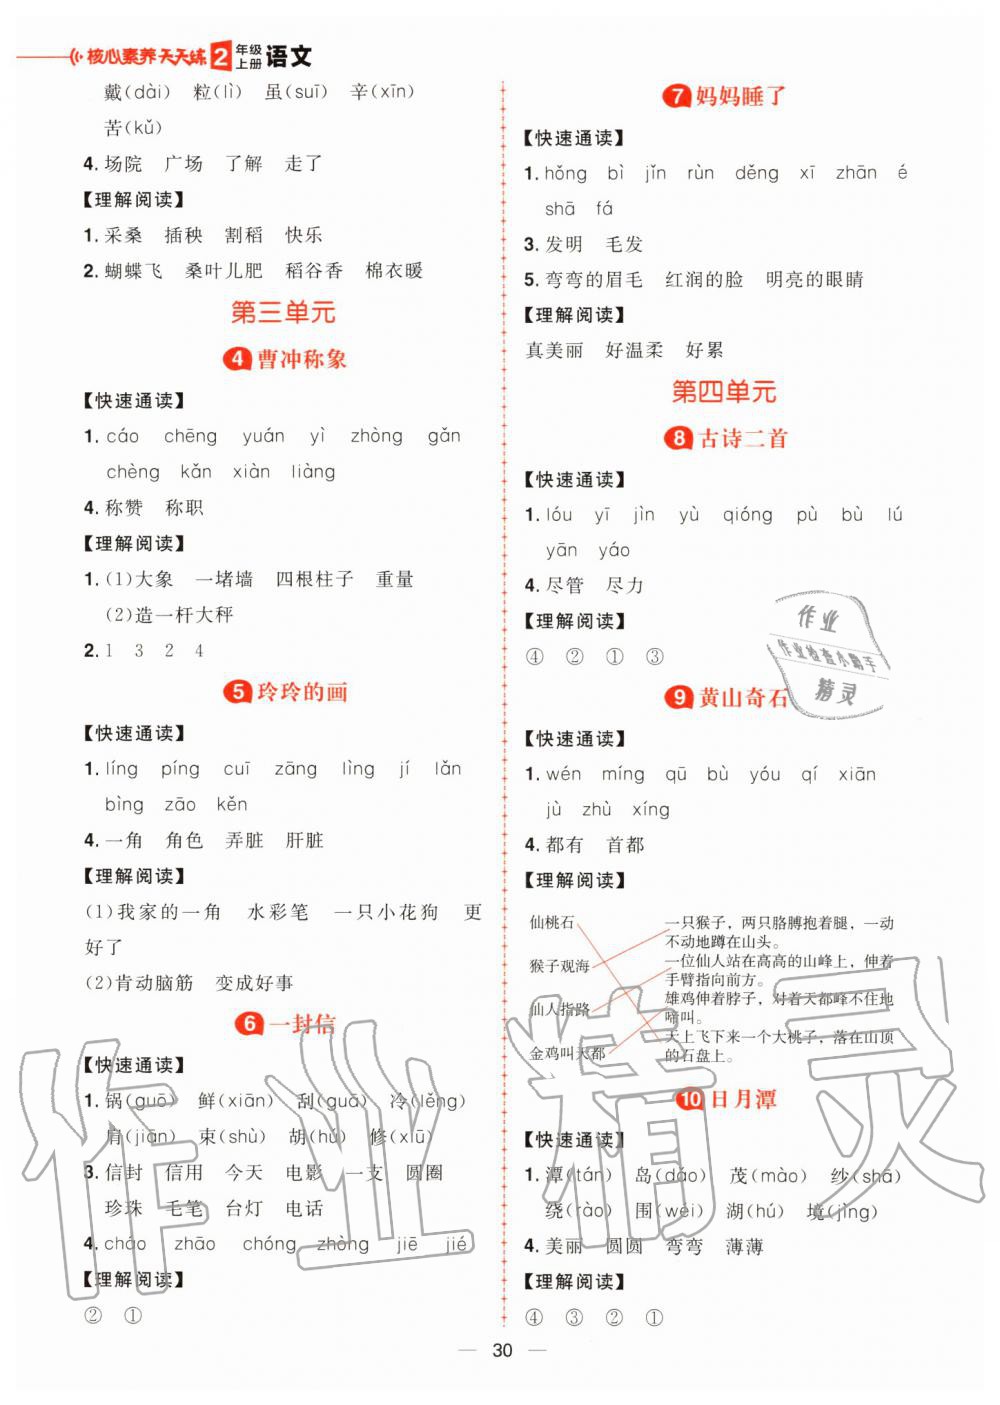 核心素养天天练 2 年级上册 语文
戴(dài) 粒(lì) 虽(suī) 辛(xīn)
苦(kǔ)
4. 场院 广场 了解 走了
【理解阅读】
1. 采桑 插秧 割稻 快乐
2. 蝴蝶飞 桑叶儿肥 稻谷香 棉衣暖
第三单元
4 曹冲称象
【快速通读】
1. cáo chēng yuán yì zhòng gǎn
chèng kǎn xiàn liàng
4. 称赞 称职
【理解阅读】
1. (1)大象 一堵墙 四根柱子 重量
(2)造一杆大秤
2. 1 3 2 4
5 玲玲的画
【快速通读】
1. líng píng cuī zāng lìng jí lǎn
bìng zāo kěn
4. 一角 角色 弄脏 肝脏
【理解阅读】
(1)我家的一角 水彩笔 一只小花狗 更
好了
(2)肯动脑筋 变成好事
6 一封信
【快速通读】
1. 锅(guō) 鲜(xiān) 刮(guā) 冷(lěng)
肩(jiān) 束(shù) 胡(hú) 修(xiū)
3. 信封 信用 今天 电影 一支 圆圈
珍珠 毛笔 台灯 电话
4. cháo zhāo chóng zhòng jiē jié
【理解阅读】
② ①
7 妈妈睡了
【快速通读】
1. hǒng bì jǐn rùn děng xī zhān é
shā fá
3. 发明 毛发
5. 弯弯的眉毛 红润的脸 明亮的眼睛
【理解阅读】
真美丽 好温柔 好累
第四单元
8 古诗二首
【快速通读】
1. lóu yī jìn yù qióng pù bù lú
yān yáo
4. 尽管 尽力
【理解阅读】
④ ② ① ③
9 黄山奇石
【快速通读】
1. wén míng qū bù yóu qí xiān
jù zhù xíng
4. 都有 首都
【理解阅读】
仙桃石 一只猴子，两只胳膊抱着腿，一动
不动地蹲在山头。
猴子观海 一位仙人站在高高的山峰上，伸着
手臂指向前方。
仙人指路 雄鸡伸着脖子，对着天都峰不住地
啼叫。
金鸡叫天都 天上飞下来一个大桃子，落在山顶
的石盘上。
10 日月潭
【快速通读】
1. 潭(tán) 岛(dǎo) 茂(mào) 纱(shā)
绕(rào) 围(wéi) 湖(hú) 境(jìng)
4. 美丽 圆圆 弯弯 薄薄
【理解阅读】
④ ③ ② ①
30
作业
作业检查小助手
精灵
作业精灵